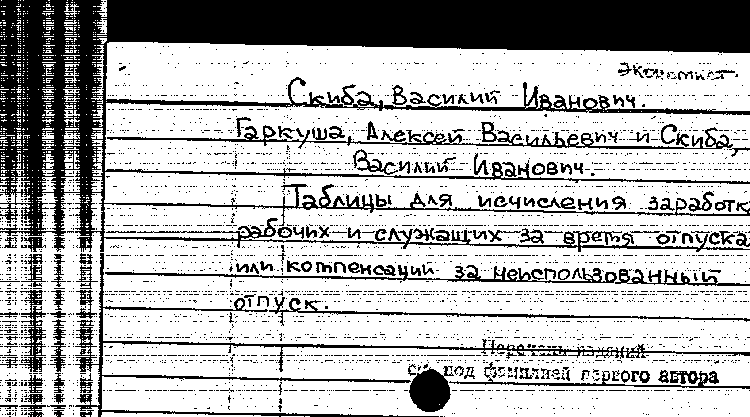 экономист.
Скиба, Василий Иванович.
Гаркуша, Алексей Васильевич и Скиба,
Василий Иванович.
Таблицы для исчисления заработк
рабочих и служащих за время отпуска
или компенсации за неиспользованный
отпуск.
Перечень изданий
см. под фамилией первого автора